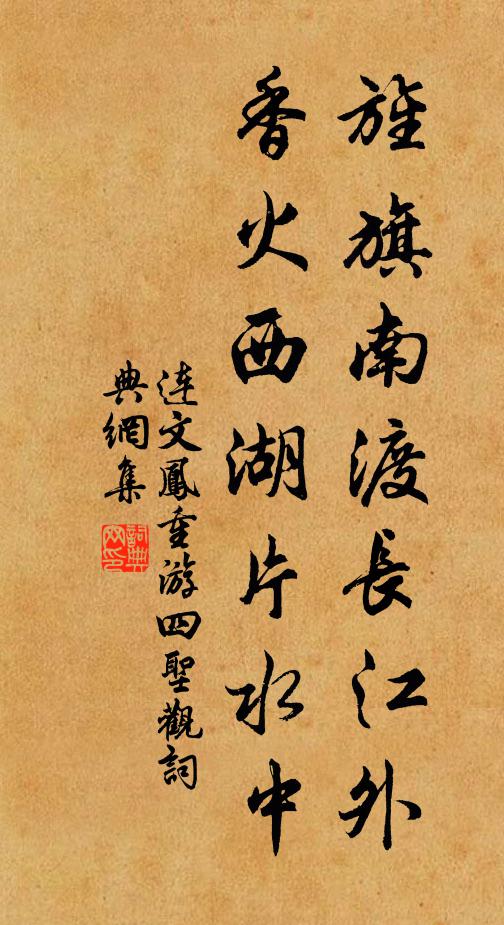 旌旗南渡長江外
香火西湖片水中
連文鳳重游四聖觀詞
典網集
詞典
网印